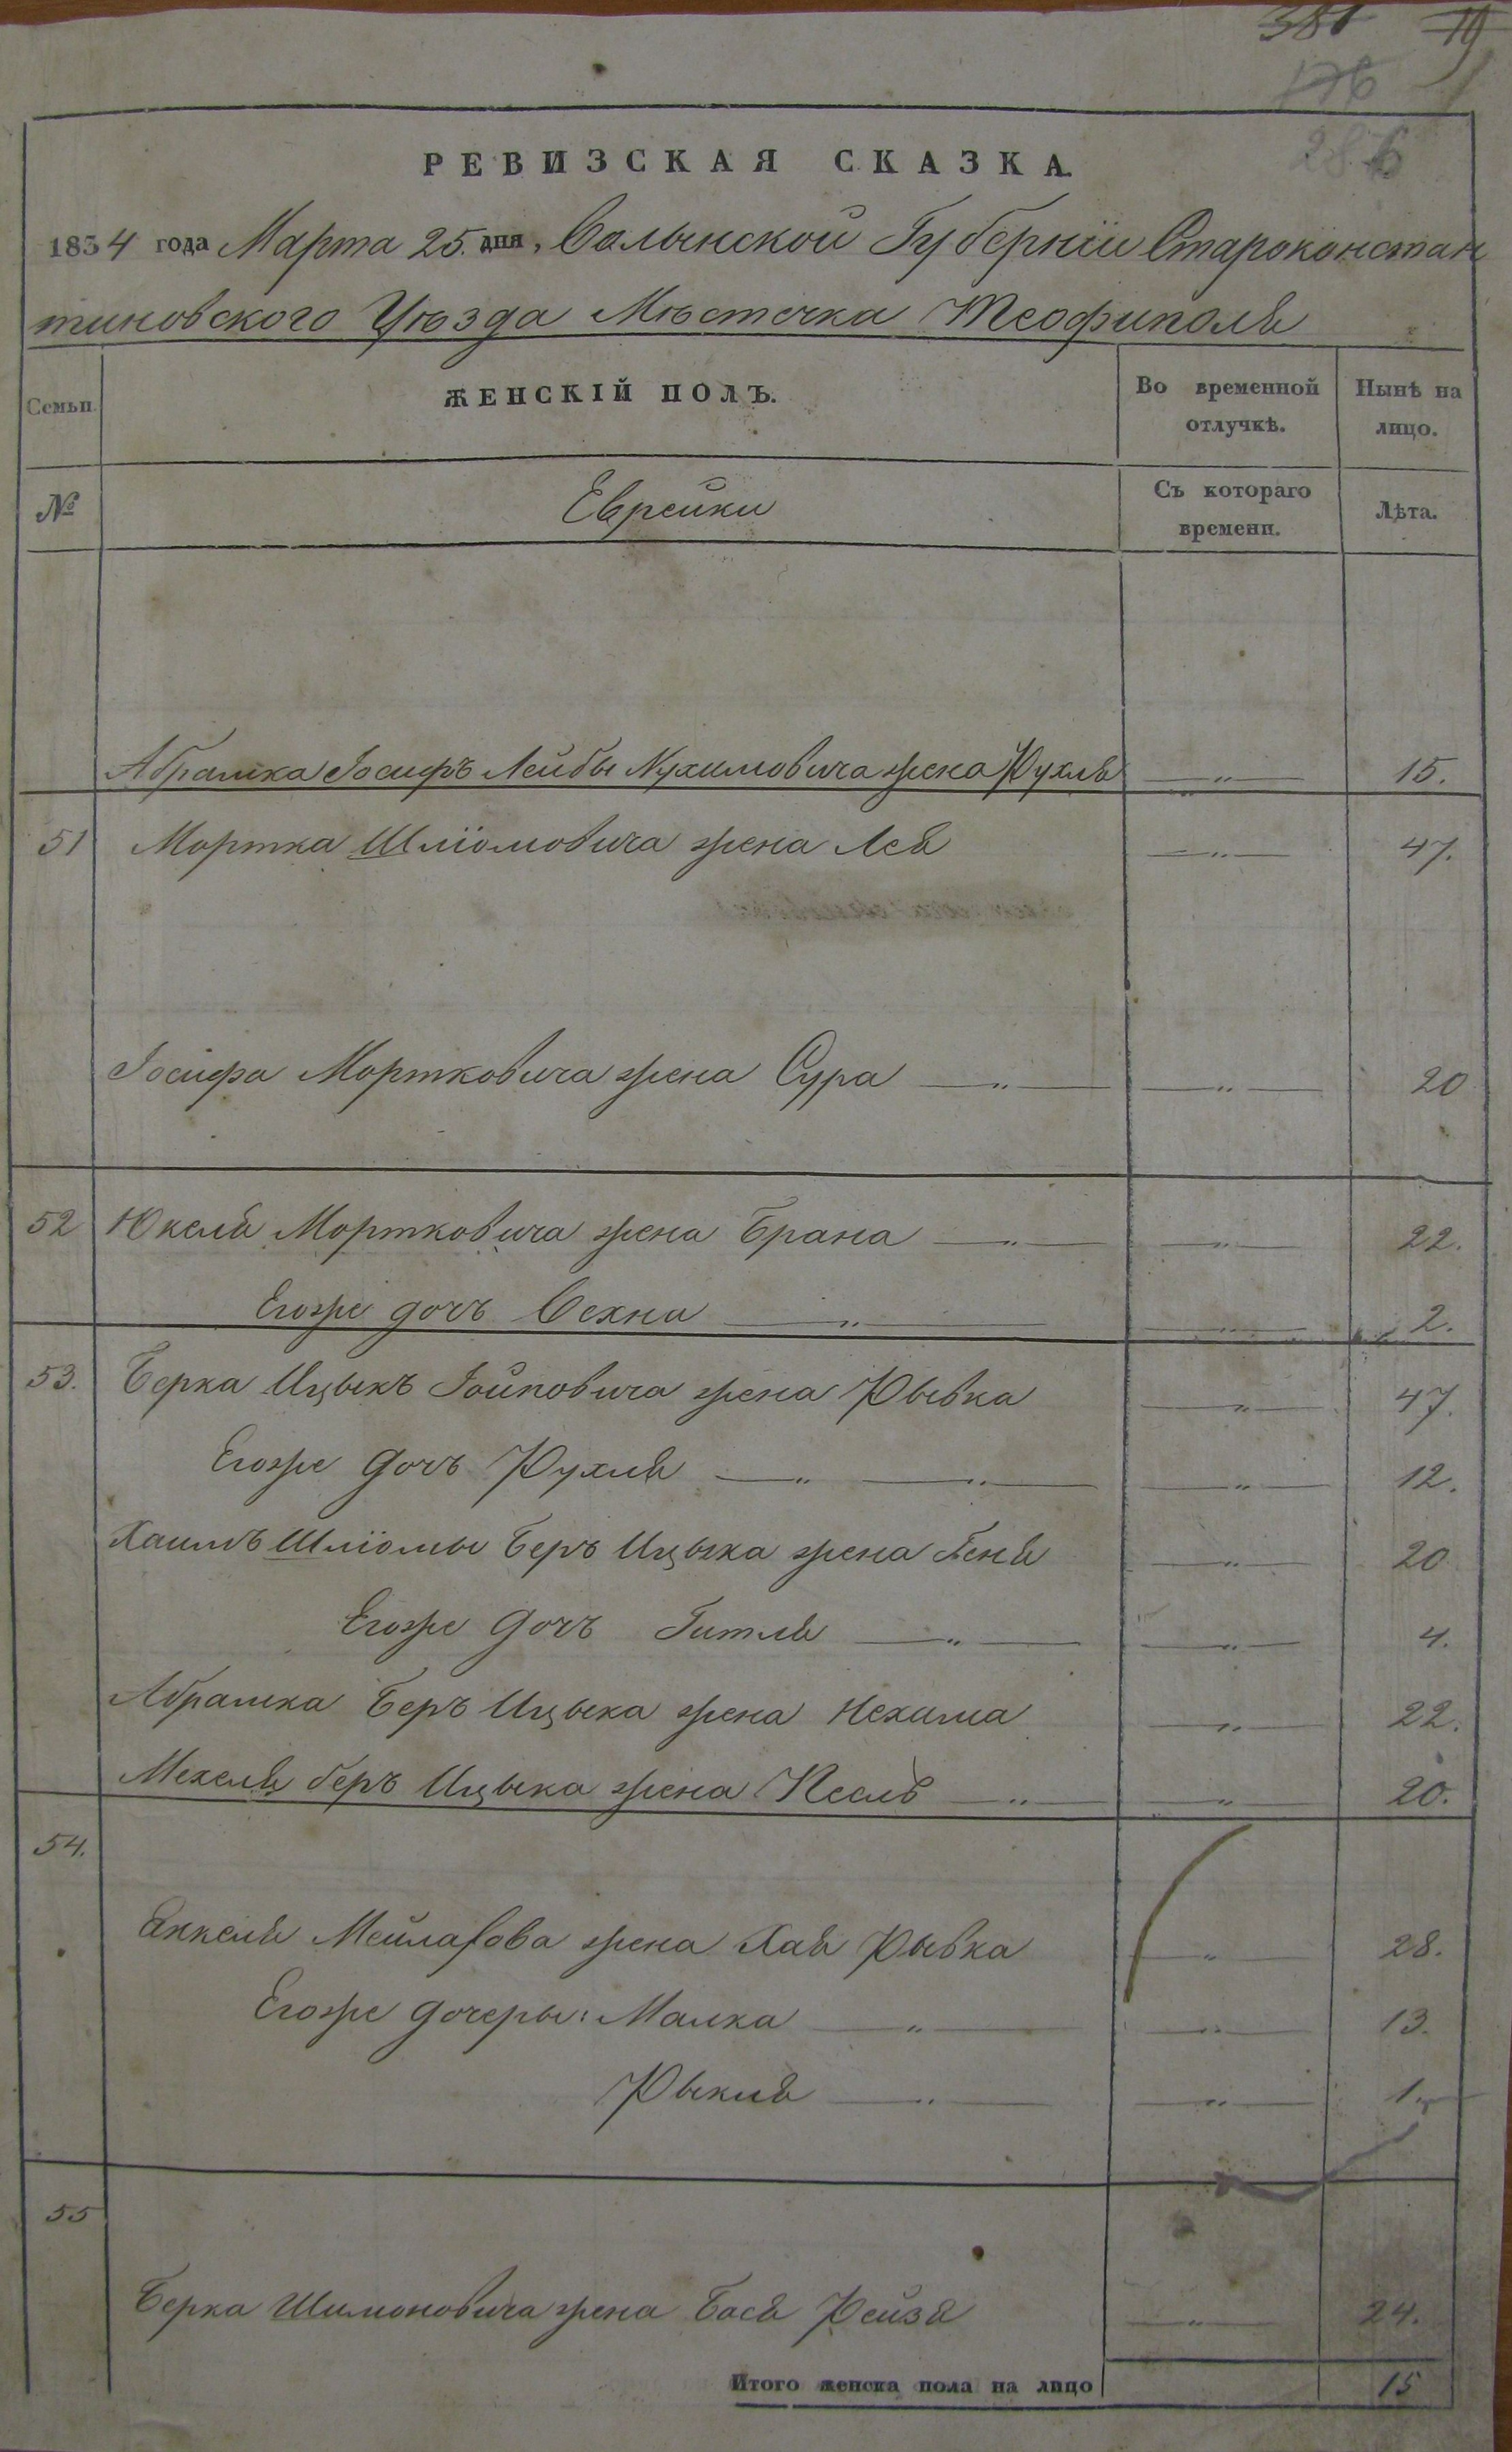 381 19
176
286
РЕВИЗСКАЯ СКАЗКА.
1834 года Марта 25. дня, Волынской Губернiи Староконстан
тиновского Уѣзда Мѣстечка Теофиполя
Семьи. ЖЕНСКІЙ ПОЛЪ. Во временной отлучкѣ. Нынѣ на лицо.
№ Еврейки Съ котораго времени. Лѣта.
Абрамка Іосифъ Лейбы Нухимовича жена Рухля —„— 15.
51 Мортка Шліомовича жена Лея —„— 47.
Іосифа Мортковича жена Сура —„— —„— 20
52 Юкеля Мортковича жена Брана —„— —„— 22.
Егоже дочь Сехна —„— —„— 2.
53. Берка Ицыкъ Іойповича жена Рывка —„— 47.
Егоже дочь Рухля —„— —„— —„— 12.
Хаимъ Шліомы Беръ Ицыка жена Геня —„— 20
Егоже дочь Гитля —„— —„— 4.
Абрамка Беръ Ицыка жена Нехама —„— 22.
Мехеля беръ Ицыка жена Песль —„— —„— 20.
54.
Янкеля Мейлахова жена Хая Рывка —„— 28.
Егоже дочеры: Малка —„— —„— 13.
Рыкля —„— —„— 1.
55
Берка Шимоновича жена Бася Рейзя —„— 24.
Итого женска пола на лицо 15